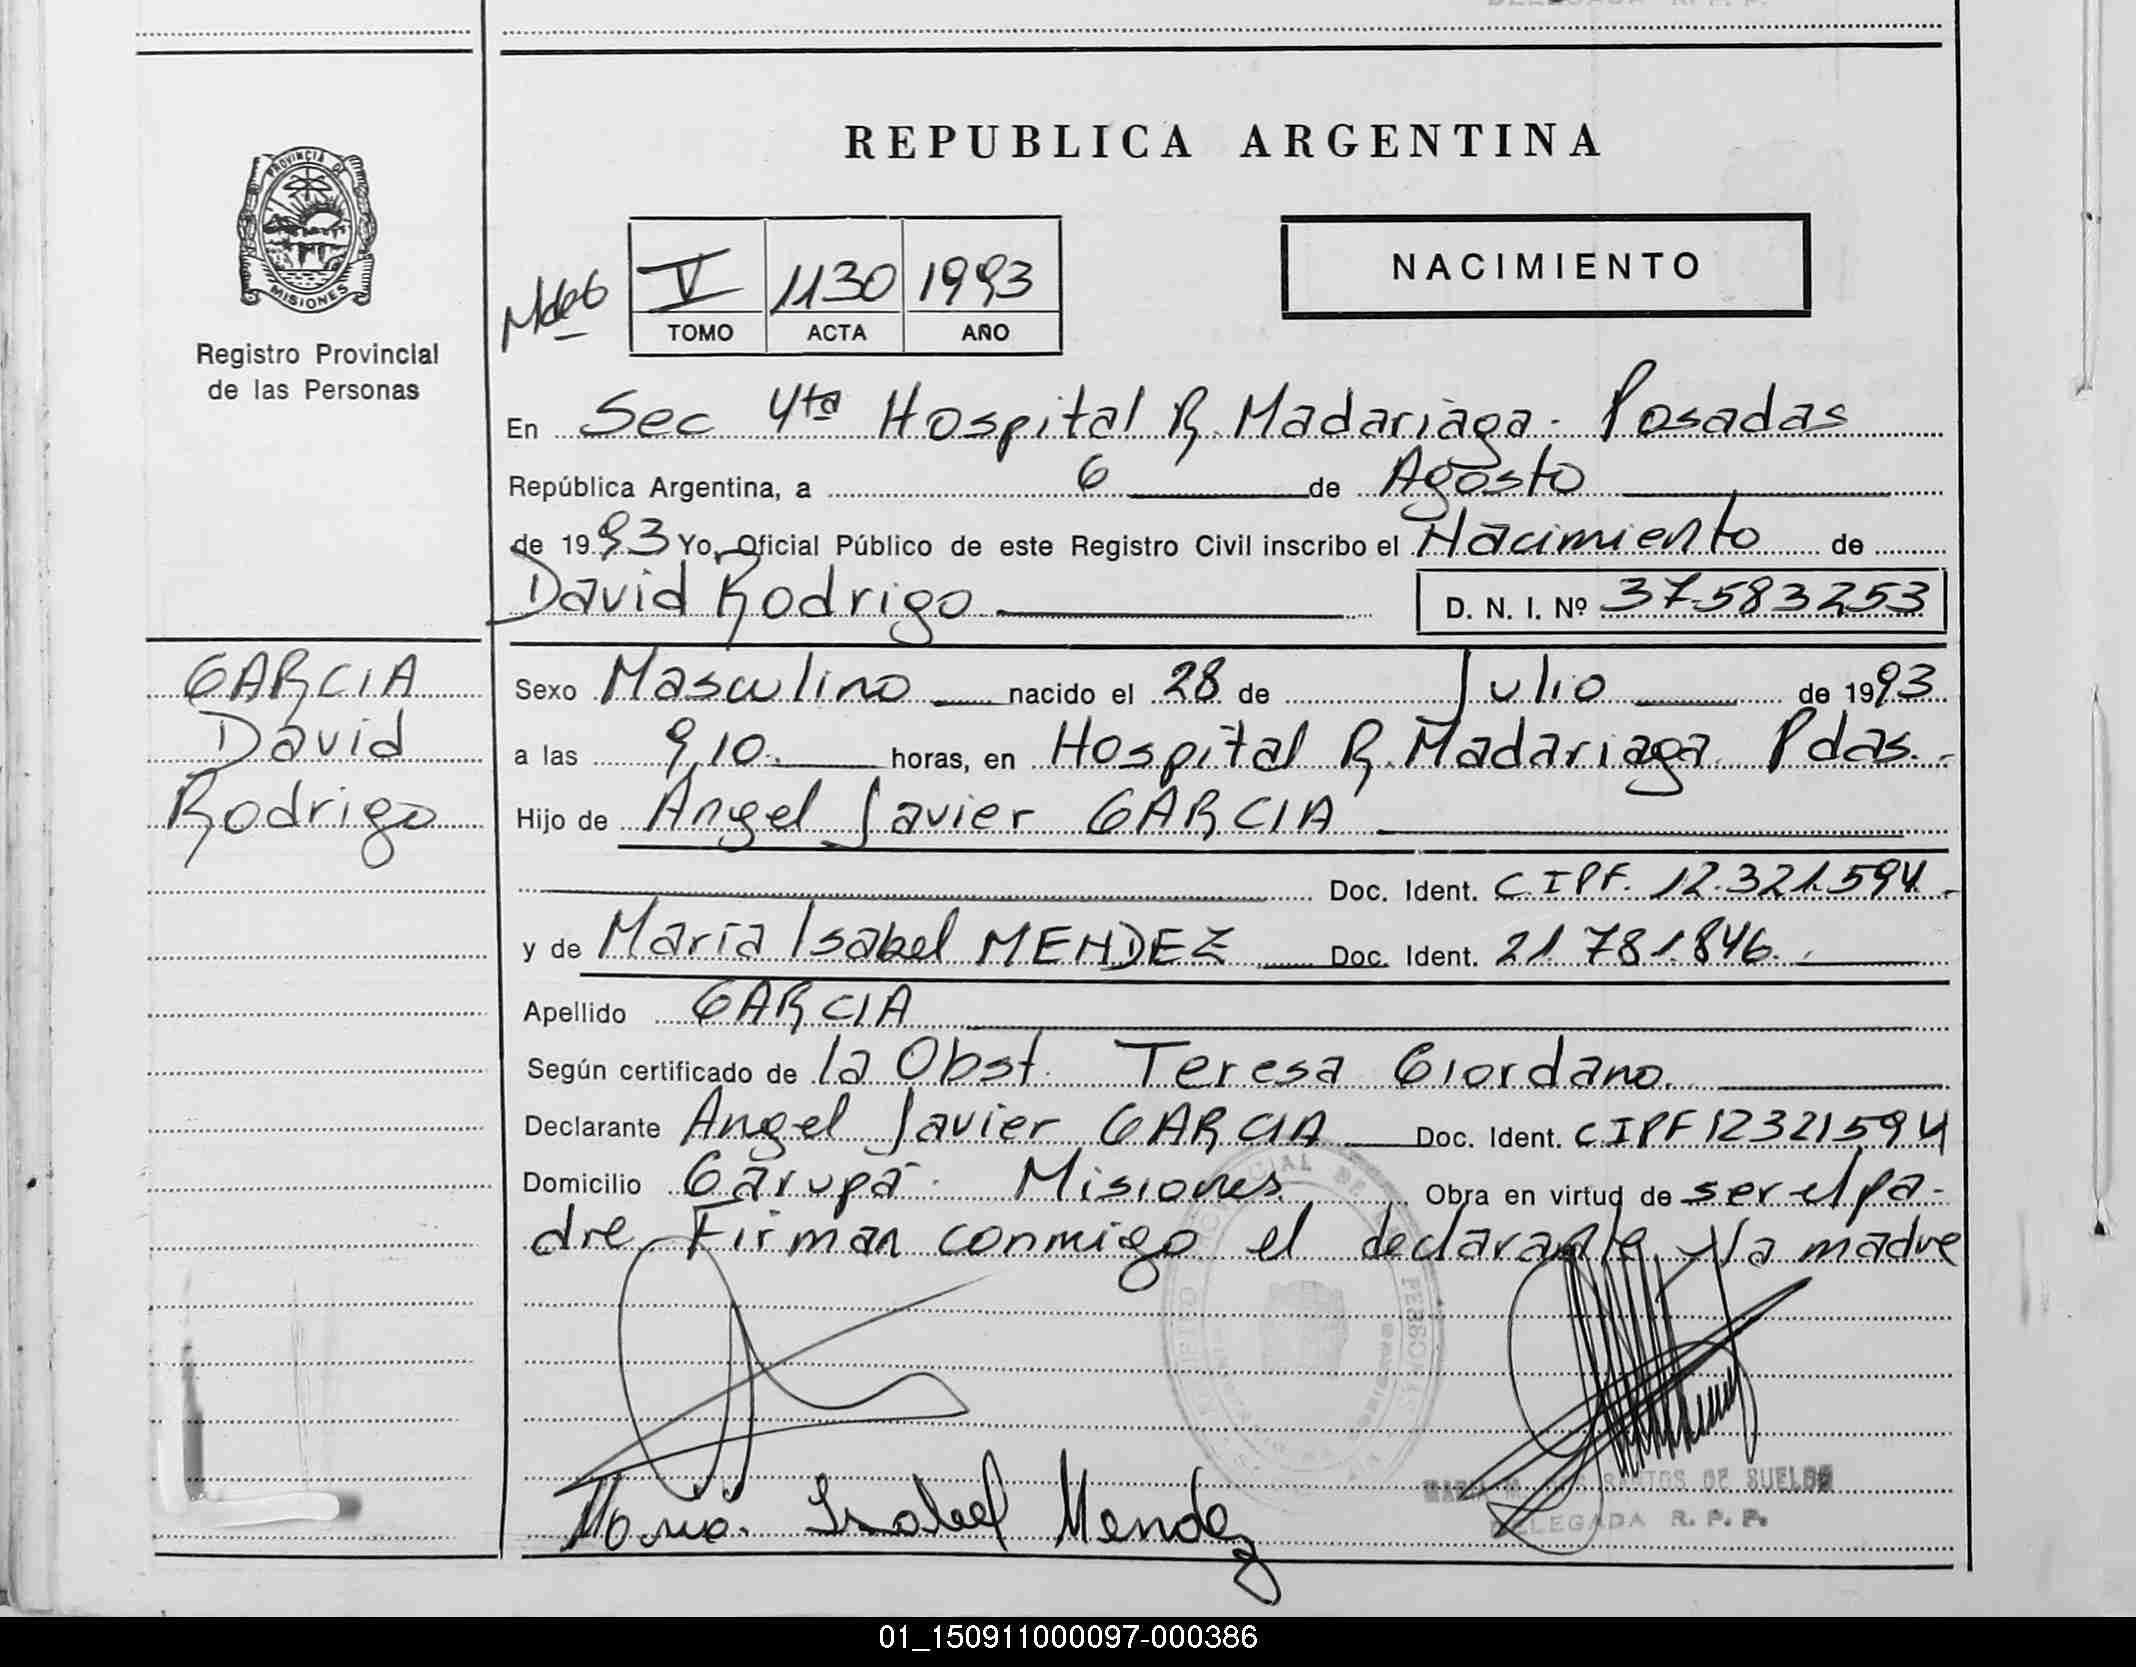 REPUBLICA ARGENTINA
PROVINCIA DE
MISIONES
Registro Provincial
de las Personas
V 1130 1993
TOMO ACTA AÑO
NACIMIENTO
En Sec 4ta Hospital R. Madariaga - Posadas
República Argentina, a 6 de Agosto
de 1993 Yo, Oficial Público de este Registro Civil inscribo el Nacimiento de
David Rodrigo D. N. I. Nº 37.583253
GARCIA
David
Rodrigo
Sexo Masculino nacido el 28 de Julio de 1993
a las 9,10. horas, en Hospital R. Madariaga Pdas.-
Hijo de Angel Javier GARCIA
Doc. Ident. C.IPF. 12.321.594.-
y de María Isabel MENDEZ Doc. Ident. 21.781.846.
Apellido GARCIA
Según certificado de la Obst. Teresa Giordano.
Declarante Angel Javier GARCIA Doc. Ident. CIPF12321594
Domicilio Garupá - Misiones Obra en virtud de ser el pa-
dre Firman conmigo el declarante y la madre
Maria Isabel Mendez
DOS SANTOS DE SUELDO
DELEGADA R. P. P.
01_150911000097-000386